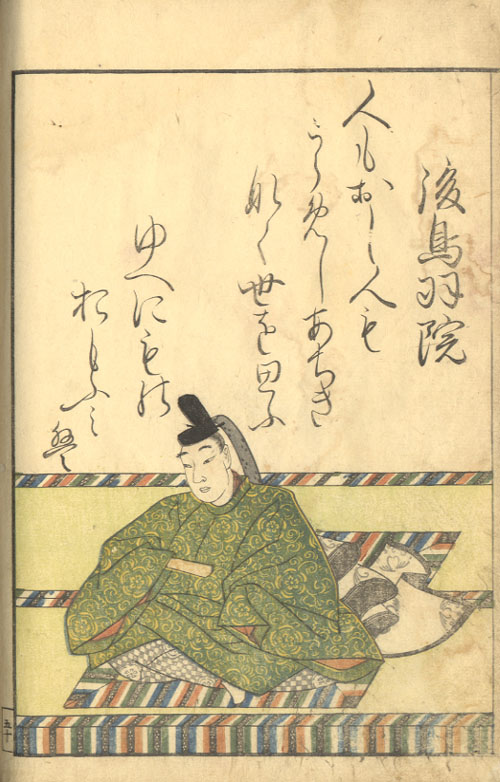 後鳥羽院
人もおし人も
うらめしあちき
なく世を思ふ
ゆへにもの
おもふみは
五十